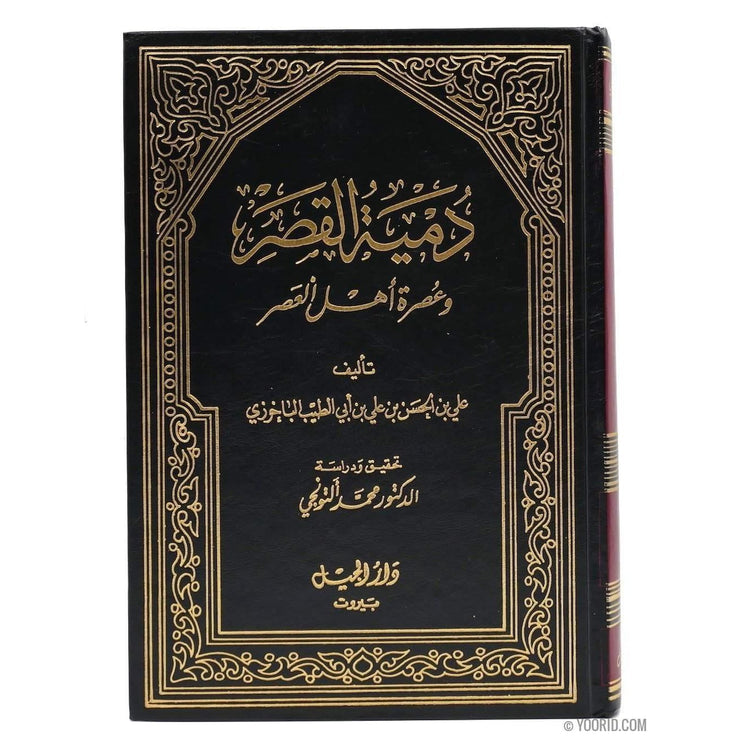 دُميَة القَصرَ
وعُصرة أهل العَصر
تأليف
علي بن الحسَن بن علي بن أبي الطيّب الباخرزي
تحقيق ودراسة
الدكتور محمد ألتونجي
دار الجيل
بيروت
© YOORID.COM